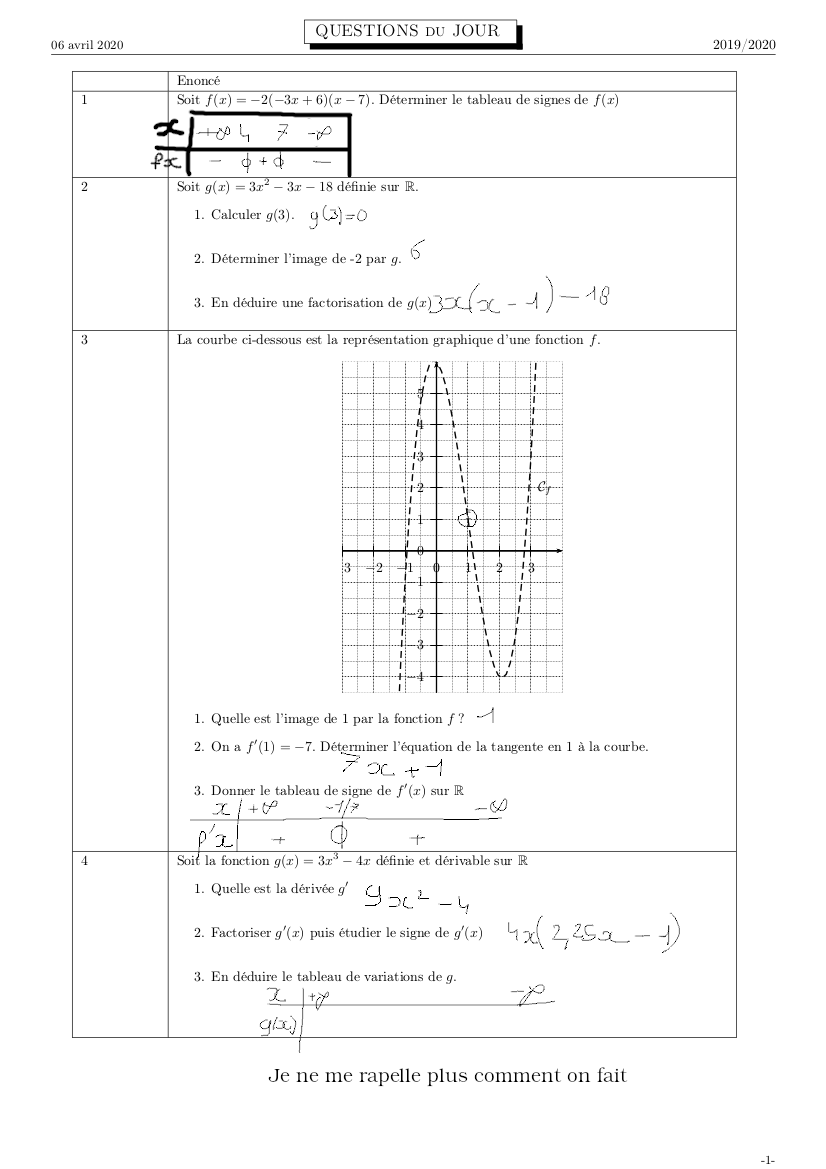 QUESTIONS DU JOUR
06 avril 2020 2019/2020
Enoncé
1 Soit f(x) = −2(−3x + 6)(x − 7). Déterminer le tableau de signes de f(x)
x +∞ 4 7 -∞
fx − ϕ + ϕ −
2 Soit g(x) = 3x² − 3x − 18 définie sur ℝ.
1. Calculer g(3). g(3)=0
2. Déterminer l'image de -2 par g. 6
3. En déduire une factorisation de g(x) 3x(x − 1) − 18
3 La courbe ci-dessous est la représentation graphique d'une fonction f.
5
4
3
2 𝒞f
1
0
3 −2 −1 0 1 2 3
−1
−2
3
−4
1. Quelle est l'image de 1 par la fonction f ? -1
2. On a f′(1) = −7. Déterminer l'équation de la tangente en 1 à la courbe.
7x + 1
3. Donner le tableau de signe de f′(x) sur ℝ
x +∞ -1/7 -∞
f'x + ϕ +
4 Soit la fonction g(x) = 3x³ − 4x définie et dérivable sur ℝ
1. Quelle est la dérivée g′ 9x² − 4
2. Factoriser g′(x) puis étudier le signe de g′(x) 4x(2,25x − 1)
3. En déduire le tableau de variations de g.
x +∞ -∞
g(x)
Je ne me rapelle plus comment on fait
-1-